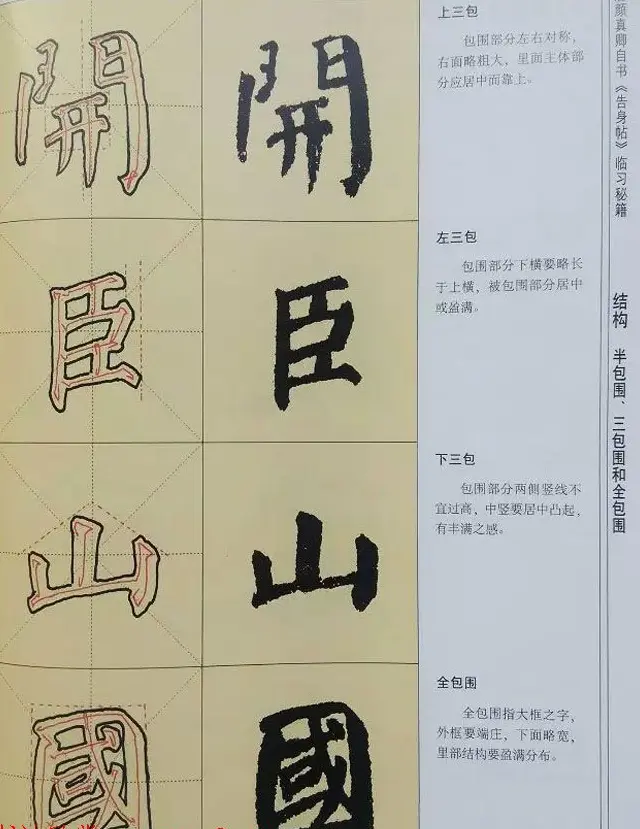 開 開
上三包
包围部分左右对称，
右面略粗大，里面主体部
分应居中面靠上。
臣 臣
左三包
包围部分下横要略长
于上横，被包围部分居中
或盈满。
山 山
下三包
包围部分两侧竖线不
宜过高，中竖要居中凸起，
有丰满之感。
國 國
全包围
全包围指大框之字，
外框要端庄，下面略宽，
里部结构要盈满分布。
颜真卿自书《告身帖》临习秘籍
结构 半包围、三包围和全包围